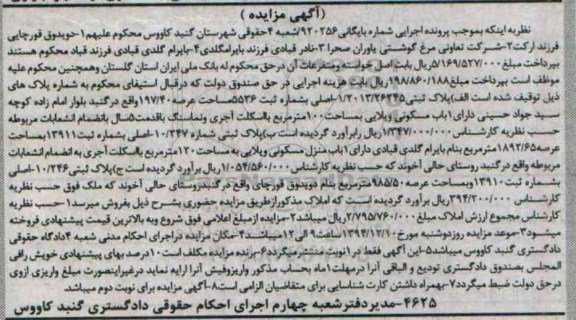 (آگهی مزایده )
نظر به اینکه بموجب پرونده اجرایی شماره بایگانی ۹۲۰۲۵۶ شعبه ۴ حقوقی شهرستان گنبد کاووس محکوم علیهم ۱-دویدوق قورچایی
فرزند ارکت ۲-شرکت تعاونی مرغ گوشتی یاوران صحرا ۳-نادر قبادی فرزند بایرامگلدی ۴-بایرام گلدی قبادی فرزند قباد محکوم هستند
بپرداخت مبلغ ۵/۱۶۹/۵۲۷/۰۰۰ریال بابت اصل خواسته ومتفرعات آن در حق محکوم له بانک ملی ایران استان گلستان وهمچنین محکوم علیه
موظف است بپرداخت مبلغ ۱۹۸/۸۶۰/۱۸۸ریال بابت هزینه اجرایی در حق صندوق دولت که درقبال استیفای محکوم به شماره پلاک های
ذیل توقیف شده است الف)پلاک ثبتی ۱/۲۰۱۳/۲۶۲۴۵-اصلی بشماره ثبت ۵۵۳۶مساحت عرصه ۱۹۷/۴۰واقع در گنبد بلوار امام زاده کوچه
سید جواد حسینی دارای ۱باب مسکونی ویلایی بمساحت ۱۰۰مترمربع بااسکلت آجری ونماسنگ باقدمت ۵سال بانضمام انشعابات مربوطه
حسب نظریه کارشناس ۱/۳۴۷/۰۰۰/۰۰۰ ریال رابرآورد گردیده است ب)پلاک ثبتی شماره ۱۰/۲۴۷-اصلی بشماره ثبت ۱۳۹۱۱بمساحت
عرصه ۱۸۹۲/۶۵مترمربع بنام بایرام گلدی قبادی دارای ۱باب منزل مسکونی ویلایی به مساحت ۱۲۰مترمربع بااسکلت آجری به انضمام انشعابات
مربوطه واقع در گنبد روستای حالی آخوند که حسب نظریه کارشناس ۱/۰۵۴/۵۶۰/۰۰۰ریال برآورد گردیده است ج)پلاک ثبتی ۱۰/۲۴۶-اصلی
بشماره ثبت ۱۳۹۱۰وبمساحت عرصه ۹۸۵/۵۰مترمربع بنام دویدوق قورچای واقع در گنبدروستای حالی آخوند که ملک فوق حسب نظریه
کارشناس ۳۹۴/۲۰۰/۰۰۰ریال برآورد گردیده است که املاک مذکورازطریق مزایده حضوری بشرح ذیل بفروش میرسد ۱-حسب نظریه
کارشناس مجموع ارزش املاک مبلغ ۲/۷۹۵/۷۶۰/۰۰۰ریال میباشد ۲-مزایده از مبلغ اعلامی فوق شروع وبه بالاترین قیمت پیشنهادی فروخته
میشود ۳-موعد مزایده روزدوشنبه مورخ ۱۳۹۴/۱۲/۱۰ساعت ۹الی ۱۲میباشد ۴-مکان مزایده دراجرای احکام مدنی شعبه ۴دادگاه حقوقی
دادگستری گنبد کاووس میباشد ۵-این آگهی فقط در ۱نوبت منتشرمیگردد ۶-برنده مزایده مکلف است ۱۰درصد بهای پیشنهادی خویش رافی
المجلس بصندوق دادگستری تودیع و الباقی آنرا درمهلت ۱ماه بحساب مذکور واریزوفیش آنرا ارایه نماید درغیراینصورت مبلغ واریزی ازوی
درحق دولت ضبط میگردد ۷-بهمراه داشتن کارت شناسایی برای متقاضیان الزامی است ۸-آگهی مزایده برای نوبت دوم میباشد.
۴۶۲۵-مدیردفترشعبه چهارم اجرای احکام حقوقی دادگستری گنبد کاووس